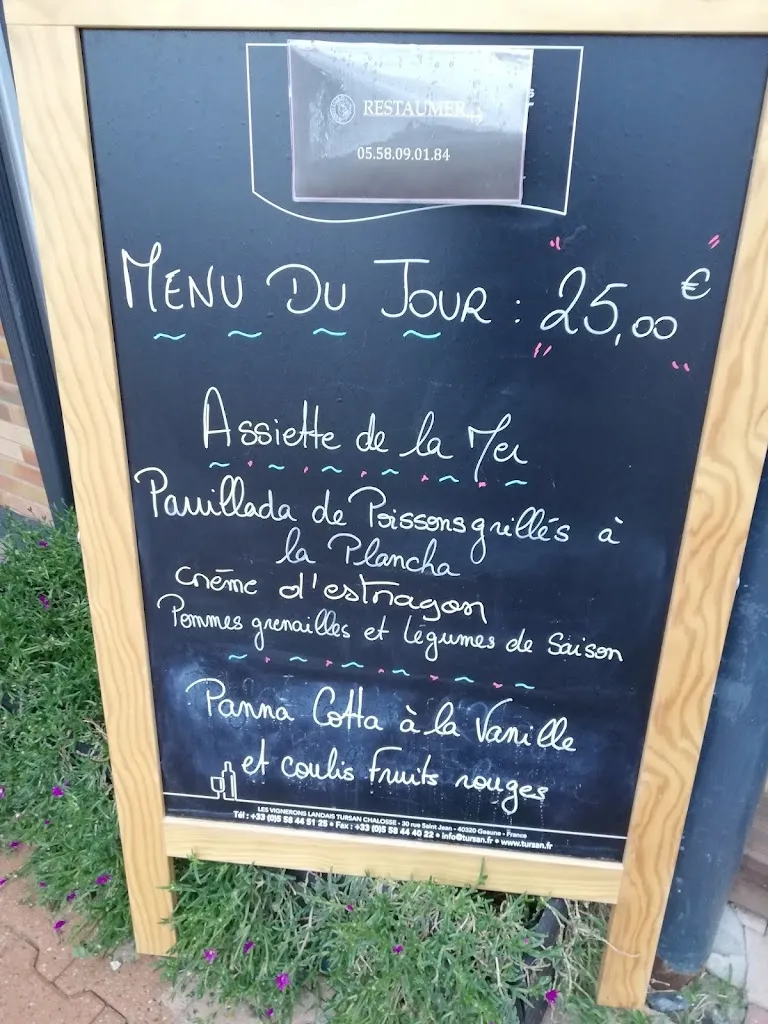 RESTAUMER
05.58.09.01.84
MENU DU JOUR : 25,00 €
Assiette de la Mer
Parrillada de Poissons grillés à
la Plancha
crème d'estragon
Pommes grenailles et légumes de Saison
Panna Cotta à la Vanille
et coulis Fruits rouges
LES VIGNERONS LANDAIS TURSAN CHALOSSE - 30 rue Saint Jean - 40320 Geaune - France
Tél : +33 (0)5 58 44 51 25 • Fax : +33 (0)5 58 44 40 22 • info@tursan.fr • www.tursan.fr